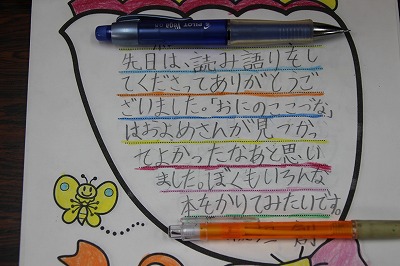 PILOT
先日は、読み語りをし
てくださってありがとうご
ざいました。「おにのここづな」
はおよめさんが見つかっ
てよかったなあと思い
ました。ぼくもいろんな
本をかりてみたいです。